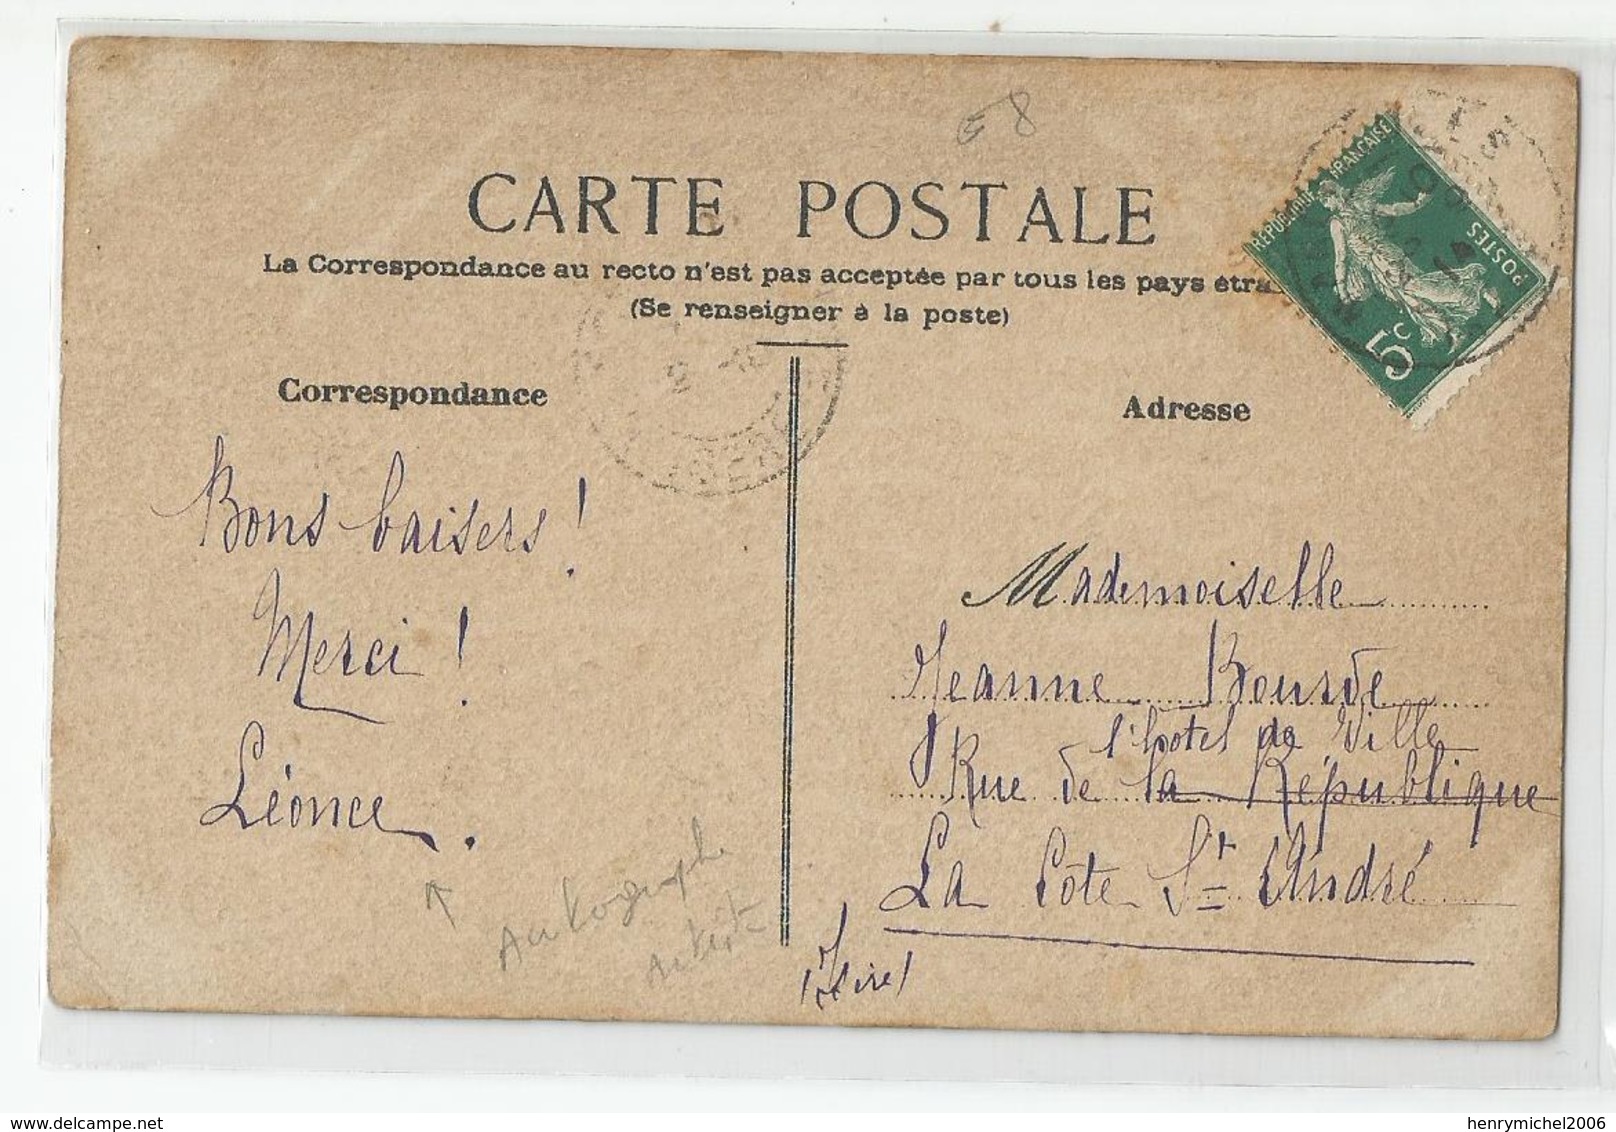 G 8
CARTE POSTALE
La Correspondance au recto n'est pas acceptée par tous les pays étra
(Se renseigner à la poste)
RÉPUBLIQUE FRANÇAISE
POSTES
5c
Correspondance
Bons baisers !
Merci !
Léonce.
Autographe
Artiste
Adresse
Mademoiselle
Jeanne Bourde
l'hotel de Ville
Rue de la République
La Côte St André
(Isère)
henrymichel2006